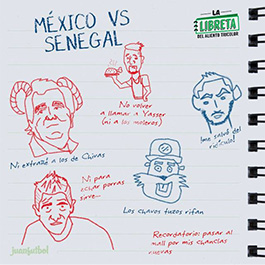 MÉXICO VS
SENEGAL
LA
LIBRETA
DEL ALIENTO TRICOLOR
No volver
a llamar a Yasser
(ni a los meleros)
¡me salvó del
ridículo!
Ni extrañé a los de Chivas
Ni para
echar porras
sirve...
Los chavos tuzos rifan
Recordatorio: pasar al
mall por mis chanclas
nuevas
juanfutbol